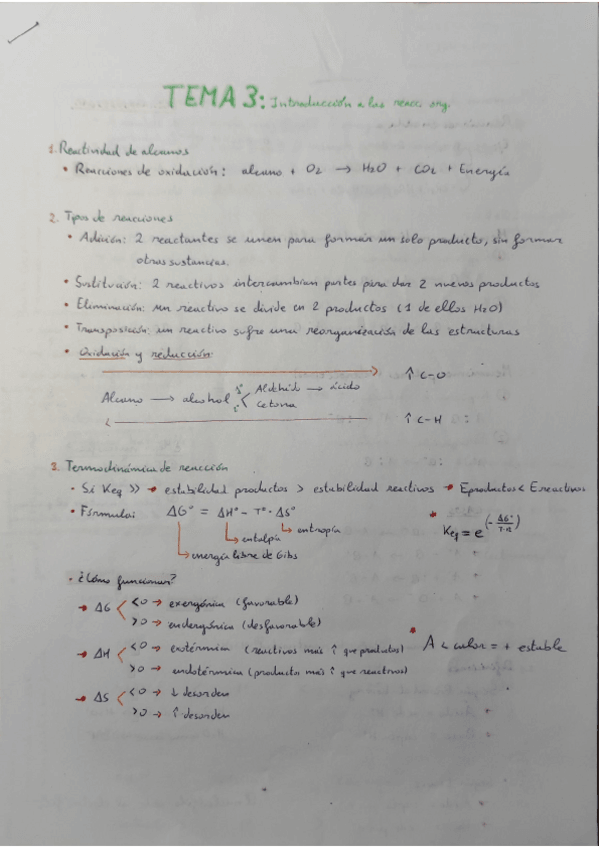 TEMA 3: Introducción a las reacc. org.
1. Reactividad de alcanos
• Reacciones de oxidación: alcano + O2 → H2O + CO2 + Energía
2. Tipos de reacciones
• Adición: 2 reactantes se unen para formar un solo producto, sin formar
otras sustancias.
• Sustitución: 2 reactivos intercambian partes para dar 2 nuevos productos
• Eliminación: un reactivo se divide en 2 productos (1 de ellos H2O)
• Transposición: un reactivo sufre una reorganización de las estructuras
• Oxidación y reducción:
↑ C-O
Alcano → alcohol 1º Aldehído → ácido
2º cetona
↑ C-H
3. Termodinámica de reacción
• Si Keq >> → estabilidad productos > estabilidad reactivos → Eproductos < Ereactivos
• Fórmula: ΔG° = ΔH° - Tª · ΔS°
* Keq = e^(-ΔG°/T·R)
entropía
entalpía
energía libre de Gibs
• ¿Cómo funcionan?
→ ΔG < 0 → exergónica (favorable)
> 0 → endergónica (desfavorable)
→ ΔH < 0 → exotérmica (reactivos más ↑ que productos)
* A < calor = + estable
> 0 → endotérmica (productos más ↑ que reactivos)
→ ΔS < 0 → ↓ desorden
> 0 → ↑ desorden